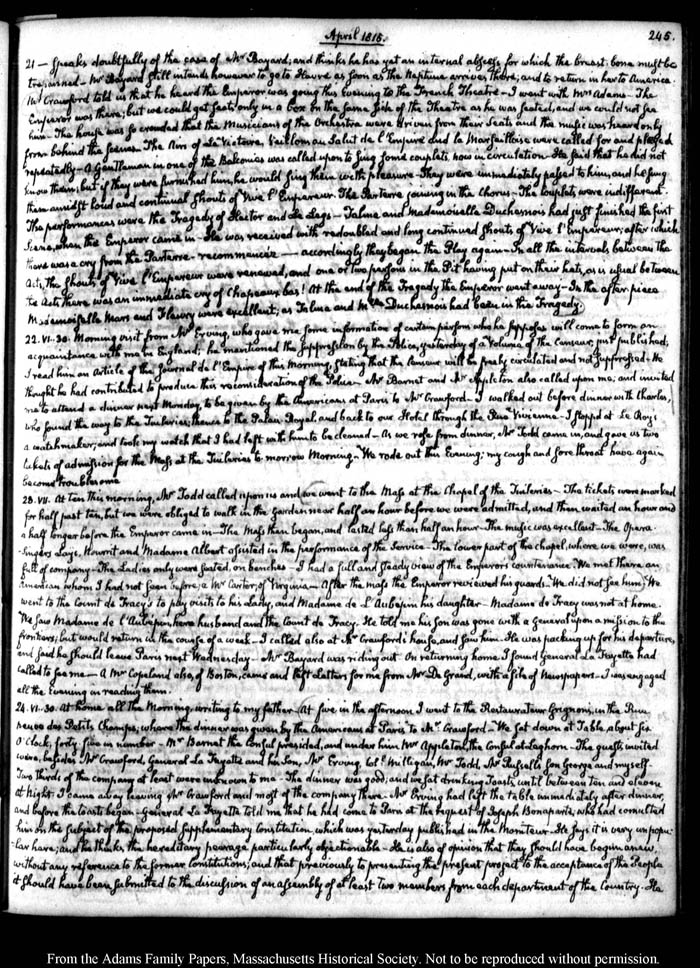 April 1815.
245.
21 — Speaks doubtfully of the case of Mr Bayard; and thinks he has yet an internal abscess for which the breast-bone must be
trepanned — Mr Bayard still intends however to go to Havre as soon as the Neptune arrives there; and to return in her to America.
Mr Crawford told us that he heard the Emperor was going this Evening to the French Theatre — I went with Mrs Adams. The
Emperor was there; but we could get seats only in a box on the same side of the Theatre as he was seated, and we could not see
him. The house was so crowded that the Musicians of the Orchestra were driven from their seats and the music was heard only
from behind the scenes. The Airs of La Victoire, Veillons au Salut de l'Empire and la Marseilloise were called for and played
repeatedly — A Gentleman in one of the Balconies was called upon to sing some couplets now in circulation. He said that he did not
know them; but if they were furnished him, he would sing them with pleasure — They were immediately passed to him, and he sung
them amidst loud and continual shouts of Vive l'Empereur. The Parterre joining in the Chorus — The couplets were indifferent.
The performances were the Tragedy of Hector and Le Legs — Talma and Mademoiselle Duchesnois had just finished the first
Scene, when the Emperor came in — He was received with redoubled and long continued shouts of Vive l'Empereur; after which
there was a cry from the Parterre — recommencez — accordingly they began the Play again — In all the intervals between the
Acts, the shouts of Vive l'Empereur were renewed, and one or two persons in the Pit having put on their hats, as is usual between
the Acts there was an immediate cry of Chapeaux bas! At the end of the Tragedy the Emperor went away — In the after piece
Mademoiselle Mars and Fleury were excellent; as Talma and Mlle Duchesnois had been in the Tragedy.
22. VI.30. Morning visit from Mr Erving, who gave me some information of certain persons who he supposes will come to form an
acquaintance with me in England; he mentioned the suppression by the Police, yesterday of a Volume of the Censeur, just published;
I read him an Article of the Journal de l'Empire of this Morning, stating that the Censeur will be freely circulated and not suppressed — He
thought he had contributed to produce this reconsideration of the Police — Mr Barnet and Mr Appleton also called upon me, and invited
me to attend a dinner next Monday, to be given by the Americans at Paris to Mr Crawford. I walked out before dinner with Charles,
who found the way to the Tuileries; thence to the Palais Royal, and back to our Hotel through the Rue Vivienne — I stopped at Le Roy's
a watchmaker; and took my watch that I had left with him to be cleaned — As we rose from dinner, Mr Todd came in, and gave us two
tickets of admission for the Mass at the Tuileries to morrow Morning — We rode out this Evening; my cough and sore throat have again
become troublesome
23. VII. At ten this morning, Mr Todd called upon us and we went to the Mass at the Chapel of the Tuileries — The tickets were marked
for half past ten, but we were obliged to walk in the Garden near half an hour before we were admitted, and then waited an hour and
a half longer before the Emperor came in — The Mass then began, and lasted less than half an hour — The music was excellent — The Opera-
Singers Lays, Nourrit and Madame Albert assisted in the performance of the Service — The lower part of the chapel, where we were, was
full of company — The Ladies only were seated, on benches — I had a full and steady view of the Emperor's countenance. We met there an
American whom I had not seen before; a Mr Carter, of Virginia — After the mass the Emperor reviewed his guards. We did not see him. We
went to the Count de Tracy's to pay visits to his Lady, and Madame de L'Aubepin his daughter — Madame de Tracy was not at home.
We saw Madame de l'Aubepin, her husband and the Count de Tracy. He told me his son was gone with a general upon a mission to the
frontiers; but would return in the course of a week — I called also at Mr Crawford's house, and saw him. He was packing up for his departure,
and said he should leave Paris next Wednesday — Mr Bayard was riding out. On returning home I found General La Fayette had
called to see me — A Mr Copeland also, of Boston, came and left Letters for me from Mr De Grand, with a file of Newspapers — I was engaged
all the Evening in reading them.
24. VI.30. At home all the Morning, writing to my father — At five in the afternoon I went to the Restaurateur Grignon's, in the Rue
neuve des Petits Champs, where the dinner was given by the Americans at Paris to Mr Crawford — We sat down at Table about six
O'Clock, forty five in number — Mr Barnet the Consul presided, and under him Mr Appleton, the Consul at Leghorn. The guests invited
were, besides Mr Crawford, General La Fayette and his Son, Mr Erving, Col. Milligan, Mr Todd, Mr Russell's Son George and myself —
Two thirds of the company at least were unknown to me — The dinner was good; and we sat drinking Toasts, until between ten and eleven
at night. I came away leaving Mr Crawford and most of the company there. Mr Erving had left the table immediately after dinner,
and before the toasts began — General La Fayette told me that he had come to Paris at the request of Joseph Bonaparte, who had consulted
him on the subject of the proposed supplementary Constitution which was yesterday published in the Moniteur. He says it is very unpopu-
lar here; and he thinks the hereditary peerage particularly objectionable — He is also of opinion that they should have begun anew,
without any reference to the former Constitutions; and that previously to presenting the present project to the acceptance of the People
it should have been submitted to the discussion of an assembly of at least Two members from each department of the Country. He
From the Adams Family Papers, Massachusetts Historical Society. Not to be reproduced without permission.